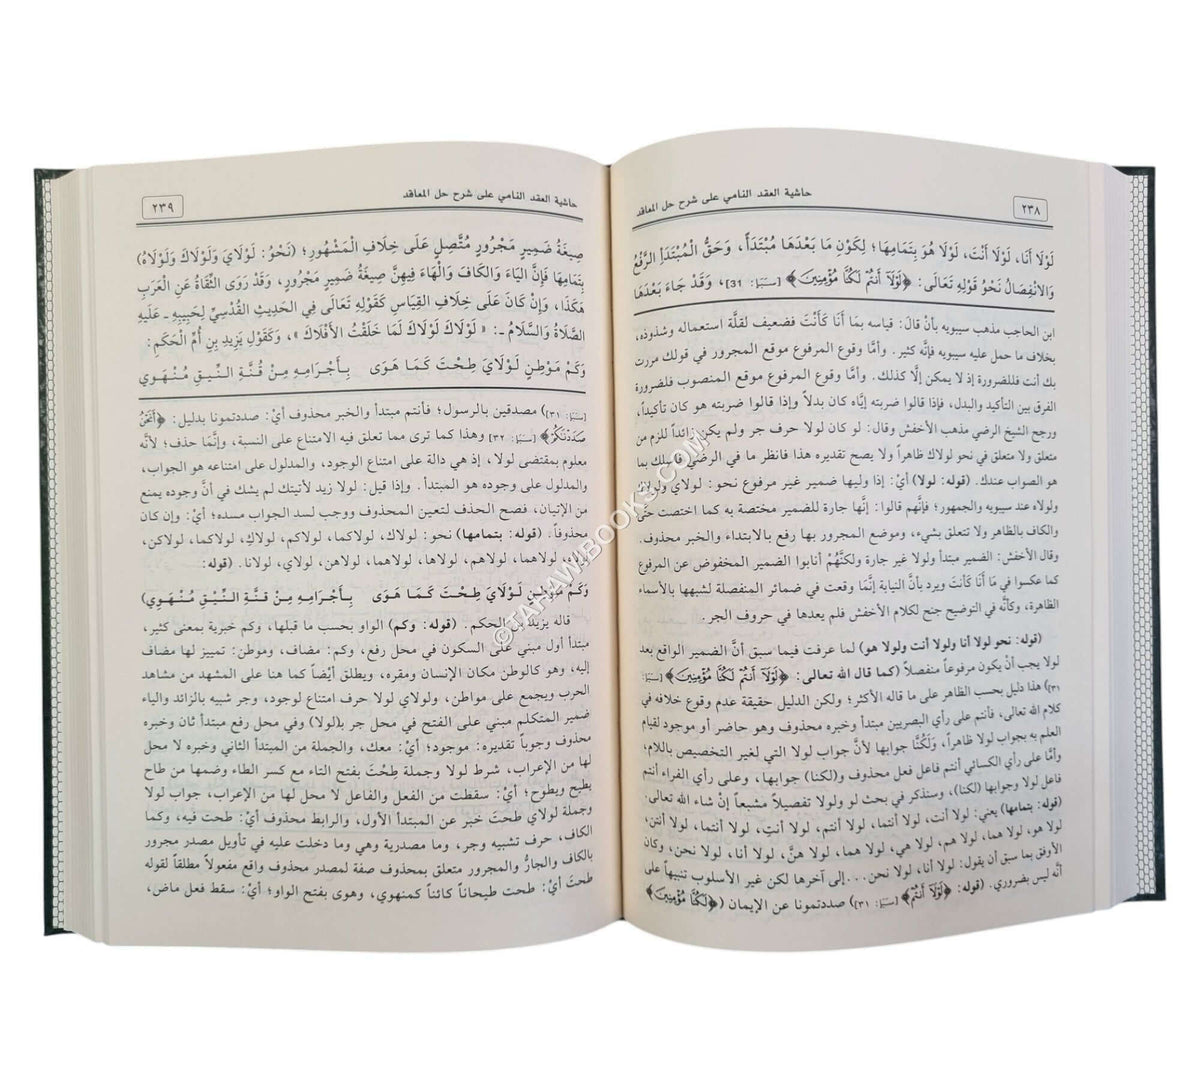 حاشية العقد النامي على شرح حل المعاقد
٢٣٨
لَوْلَا أَنَا، لَوْلَا أَنْتَ، لَوْلَا هُوَ بِتَمَامِهَا؛ لِكَوْنِ مَا بَعْدَهَا مُبْتَدَأً، وَحَقُّ الْمُبْتَدَأِ الرَّفْعُ
وَالانْفِصَالُ نَحْوُ قَوْلِهِ تَعَالَى: ﴿لَوْلَا أَنتُمْ لَكُنَّا مُؤْمِنِينَ﴾ [سَبَإ: 31]، وَقَدْ جَاءَ بَعْدَهَا
ابن الحاجب مذهب سيبويه بأنْ قالَ: قياسه بمَا أَنَا كَأَنْتَ فضعيف لقلَّة استعماله وشذوذه،
بخلاف ما حمل عليه سيبويه فإنَّه كثير. وأمَّا وقوع المرفوع موقع المجرور في قولك مررت
بك أنت فللضرورة إذ لا يمكن إلَّا كذلك. وأمَّا وقوع المرفوع موقع المنصوب فللضرورة
الفرق بين التأكيد والبدل، فإذا قالوا ضربته إيَّاه كان بدلاً وإذا قالوا ضربته هو كان تأكيداً،
ورجح الشيخ الرضي مذهب الأخفش وقال: لو كان لولا حرف جر ولم يكن زائداً للزم من
متعلق ولا متعلق في نحو لولاك ظاهراً ولا يصح تقديره هذا فانظر ما في الرضي قابلك بما
هو الصواب عندك. (قوله: لولا) أيْ: إذا وليها ضمير غير مرفوع نحو: لولاي ولولاك
ولولاه عند سيبويه والجمهور؛ فإنَّهم قالوا: إنَّها جارة للضمير مختصة به كما اختصت حتَّى
والكاف بالظاهر ولا تتعلق بشيء، وموضع المجرور بها رفع بالابتداء والخبر محذوف.
وقال الأخفش: الضمير مبتدأ ولولا غير جارة ولكنَّهُمْ أنابوا الضمير المخفوض عن المرفوع
كما عكسوا في مَا أَنَا كَأَنتَ ويرد بأنَّ النيابة إنَّمَا وقعت في ضمائر المنفصلة لشبهها بالأسماء
الظاهرة، وكأنَّه في التوضيح جنح لكلام الأخفش فلم يعدها في حروف الجر.
(قوله: نحو لولا أنا ولولا أنت ولولا هو) لما عرفت فيما سبق أنَّ الضمير الواقع بعد
لولا يجب أنْ يكون مرفوعاً منفصلاً (كما قال الله تعالى: ﴿لَوْلَا أَنتُمْ لَكُنَّا مُؤْمِنِينَ﴾ [سَبَإ:
٣١]) هذا دليل بحسب الظاهر على ما قاله الأكثر؛ ولكن الدليل حقيقة عدم وقوع خلافه في
كلام الله تعالى، فأنتم على رأي البصريين مبتدأ وخبره محذوف وهو حاضر أو موجود لقيام
العلم به بجواب لولا ظاهراً، وَلَكُنَّا جوابها لأنَّ جواب لولا التي لغير التخصيص باللام،
وأمَّا على رأي الكسائي أنتم فاعل فعل محذوف و(لكنا) جوابها، وعلى رأي الفراء أنتم
فاعل لولا وجوابها (لكنا)، وستذكر في بحث لو ولولا تفصيلاً مشبعاً إنْ شاء الله تعالى.
(قوله: بتمامها) يعني: لولا أنت، لولا أنتما، لولا أنتم، لولا أنتِ، لولا أنتما، لولا أنتن؛
لولا هو، لولا هما، لولا هم، لولا هي، لولا هما، لولا هنَّ، لولا أنا، لولا نحن، وكان
الأوفق بما سبق أن يقول: لولا أنا، لولا نحن...إلى آخرها لكن غير الأسلوب تنبيهاً على
أنَّه ليس بضروري. (قوله: ﴿لَوْلَا أَنتُمْ﴾ [سَبَإ: ٣١]) صددتمونا عن الإيمان (﴿لَكُنَّا مُؤْمِنِينَ﴾
حاشية العقد النامي على شرح حل المعاقد
٢٣٩
صِيغَةُ ضَمِيرٍ مَجْرُورٍ مُتَّصِلٍ عَلَى خِلَافِ الْمَشْهُورِ؛ (نَحْوُ: لَوْلَايَ وَلَوْلَاكَ وَلَوْلَاهُ)
بِتَمَامِهَا فَإِنَّ الْيَاءَ وَالْكَافَ وَالْهَاءَ فِيهِنَّ صِيغَةُ ضَمِيرٍ مَجْرُورٍ، وَقَدْ رَوَى الثِّقَاةُ عَنِ الْعَرَبِ
هَكَذَا، وَإِنْ كَانَ عَلَى خِلَافِ الْقِيَاسِ كَقَوْلِهِ تَعَالَى فِي الْحَدِيثِ الْقُدْسِيِّ لِحَبِيبِهِ ـ عَلَيْهِ
الصَّلَاةُ وَالسَّلَامُ ـ: «لَوْلَاكَ لَوْلَاكَ لَمَا خَلَقْتُ الْأَفْلَاكَ»، وَكَقَوْلِ يَزِيدِ بْنِ أُمِّ الْحَكَمِ:
وَكَمْ مَوْطِنٍ لَوْلَايَ طِحْتَ كَمَا هَوَى بِأَجْرَامِهِ مِنْ قُنَّةِ النِّيقِ مُنْهَوِي
[سَبَإ: ٣١]) مصدقين بالرسول؛ فأنتم مبتدأ والخبر محذوف أيْ: صددتمونا بدليل: ﴿أَنَحْنُ
صَدَدْنَاكُمْ﴾ [سَبَإ: ٣٢] وهذا كما ترى مما تعلق فيه الامتناع على النسبة، وإنَّمَا حذف؛ لأنَّه
معلوم بمقتضى لولا، إذ هي دالة على امتناع الوجود، والمدلول على امتناعه هو الجواب،
والمدلول على وجوده هو المبتدأ. وإذا قيل: لولا زيد لأتيتك لم يشك في أنَّ وجوده يمنع
من الإتيان، فصح الحذف لتعين المحذوف ووجب لسد الجواب مسده؛ أيْ: وإن كان
محذوفاً. (قوله: بتمامها) نحو: لولاك، لولاكما، لولاكم، لولاكِ، لولاكما، لولاكن،
لولاه، لولاهما، لولاهم، لولاها، لولاهما، لولاهن، لولاي، لولانا. (قوله:
وَكَمْ مَوْطِنٍ لَوْلَايَ طِحْتَ كَمَا هَوَى بِأَجْرَامِهِ مِنْ قُنَّةِ النِّيْقِ مُنْهَوِي)
قاله يزيد بن الحكم. (قوله: وكم) الواو بحسب ما قبلها، وكم خبرية بمعنى كثير،
مبتدأ أول مبني على السكون في محل رفع، وكم: مضاف، وموطن: تمييز لها مضاف
إليه، وهو كالوطن مكان الإنسان ومقره، ويطلق أيْضاً كما هنا على المشهد من مشاهد
الحرب ويجمع على مواطن، ولولاي لولا حرف امتناع لوجود، وجر شبيه بالزائد والياء
ضمير المتكلم مبني على الفتح في محل جر ب(لولا) وفي محل رفع مبتدأ ثان وخبره
محذوف وجوباً تقديره: موجود؛ أيْ: معك، والجملة من المبتدأ الثاني وخبره لا محل
لها من الإعراب، شرط لولا وجملة طِحْتَ بفتح التاء مع كسر الطاء وضمها من طاح
يطيح ويطوح؛ أيْ: سقطت من الفعل والفاعل لا محل لها من الإعراب، جواب لولا
وجملة لولاي طحت خبر عن المبتدأ الأول، والرابط محذوف أيْ: طحت فيه، وكما
الكاف، حرف تشبيه وجر، وما مصدرية وهي وما دخلت عليه في تأويل مصدر مجرور
بالكاف والجارُّ والمجرور متعلق بمحذوف صفة لمصدر محذوف واقع مفعولاً مطلقاً لقوله
طحتَ أيْ: طحت طيحاناً كائناً كمنهوي، وهوى بفتح الواو؛ أيْ: سقط فعل ماض،
©TAHAWIBOOKS.COM